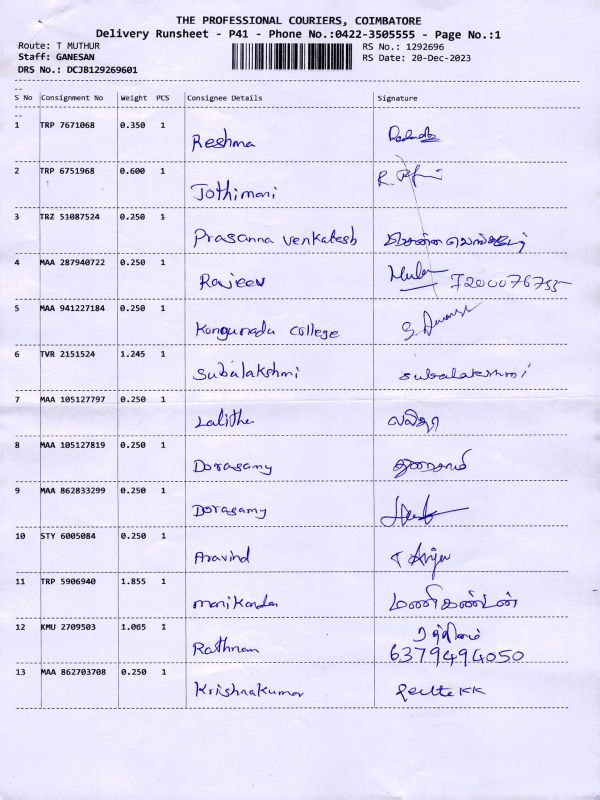 THE PROFESSIONAL COURIERS, COIMBATORE
Delivery Runsheet - P41 - Phone No.:0422-3505555 - Page No.:1
Route: T MUTHUR RS No.: 1292696
Staff: GANESAN RS Date: 20-Dec-2023
DRS No.: DCJB129269601
--
S No Consignment No Weight PCS Consignee Details Signature
--
1 TRP 7671068 0.350 1 Reshma
2 TRP 6751968 0.600 1 Jothimani
3 TRZ 51087524 0.250 1 Prasanna venkatesh
4 MAA 287940722 0.250 1 Rajeev
5 MAA 941227184 0.250 1 Kongunadu college
6 TVR 2151524 1.245 1 Subalakshmi subalakshmi
7 MAA 105127797 0.250 1 Lalitha லலிதா
8 MAA 105127819 0.250 1 Dorasamy
9 MAA 862833299 0.250 1 Dorasamy
10 STY 6005084 0.250 1 Aravind
11 TRP 5906940 1.855 1 manikandan மணிகண்டன்
12 KMU 2709503 1.065 1 Rathnam 6379494050
13 MAA 862703708 0.250 1 Krishnakumar